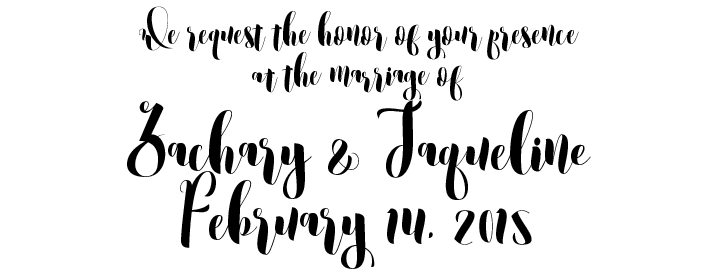 We request the honor of your presence
at the marriage of
Zachary & Jaqueline
February 14, 2018